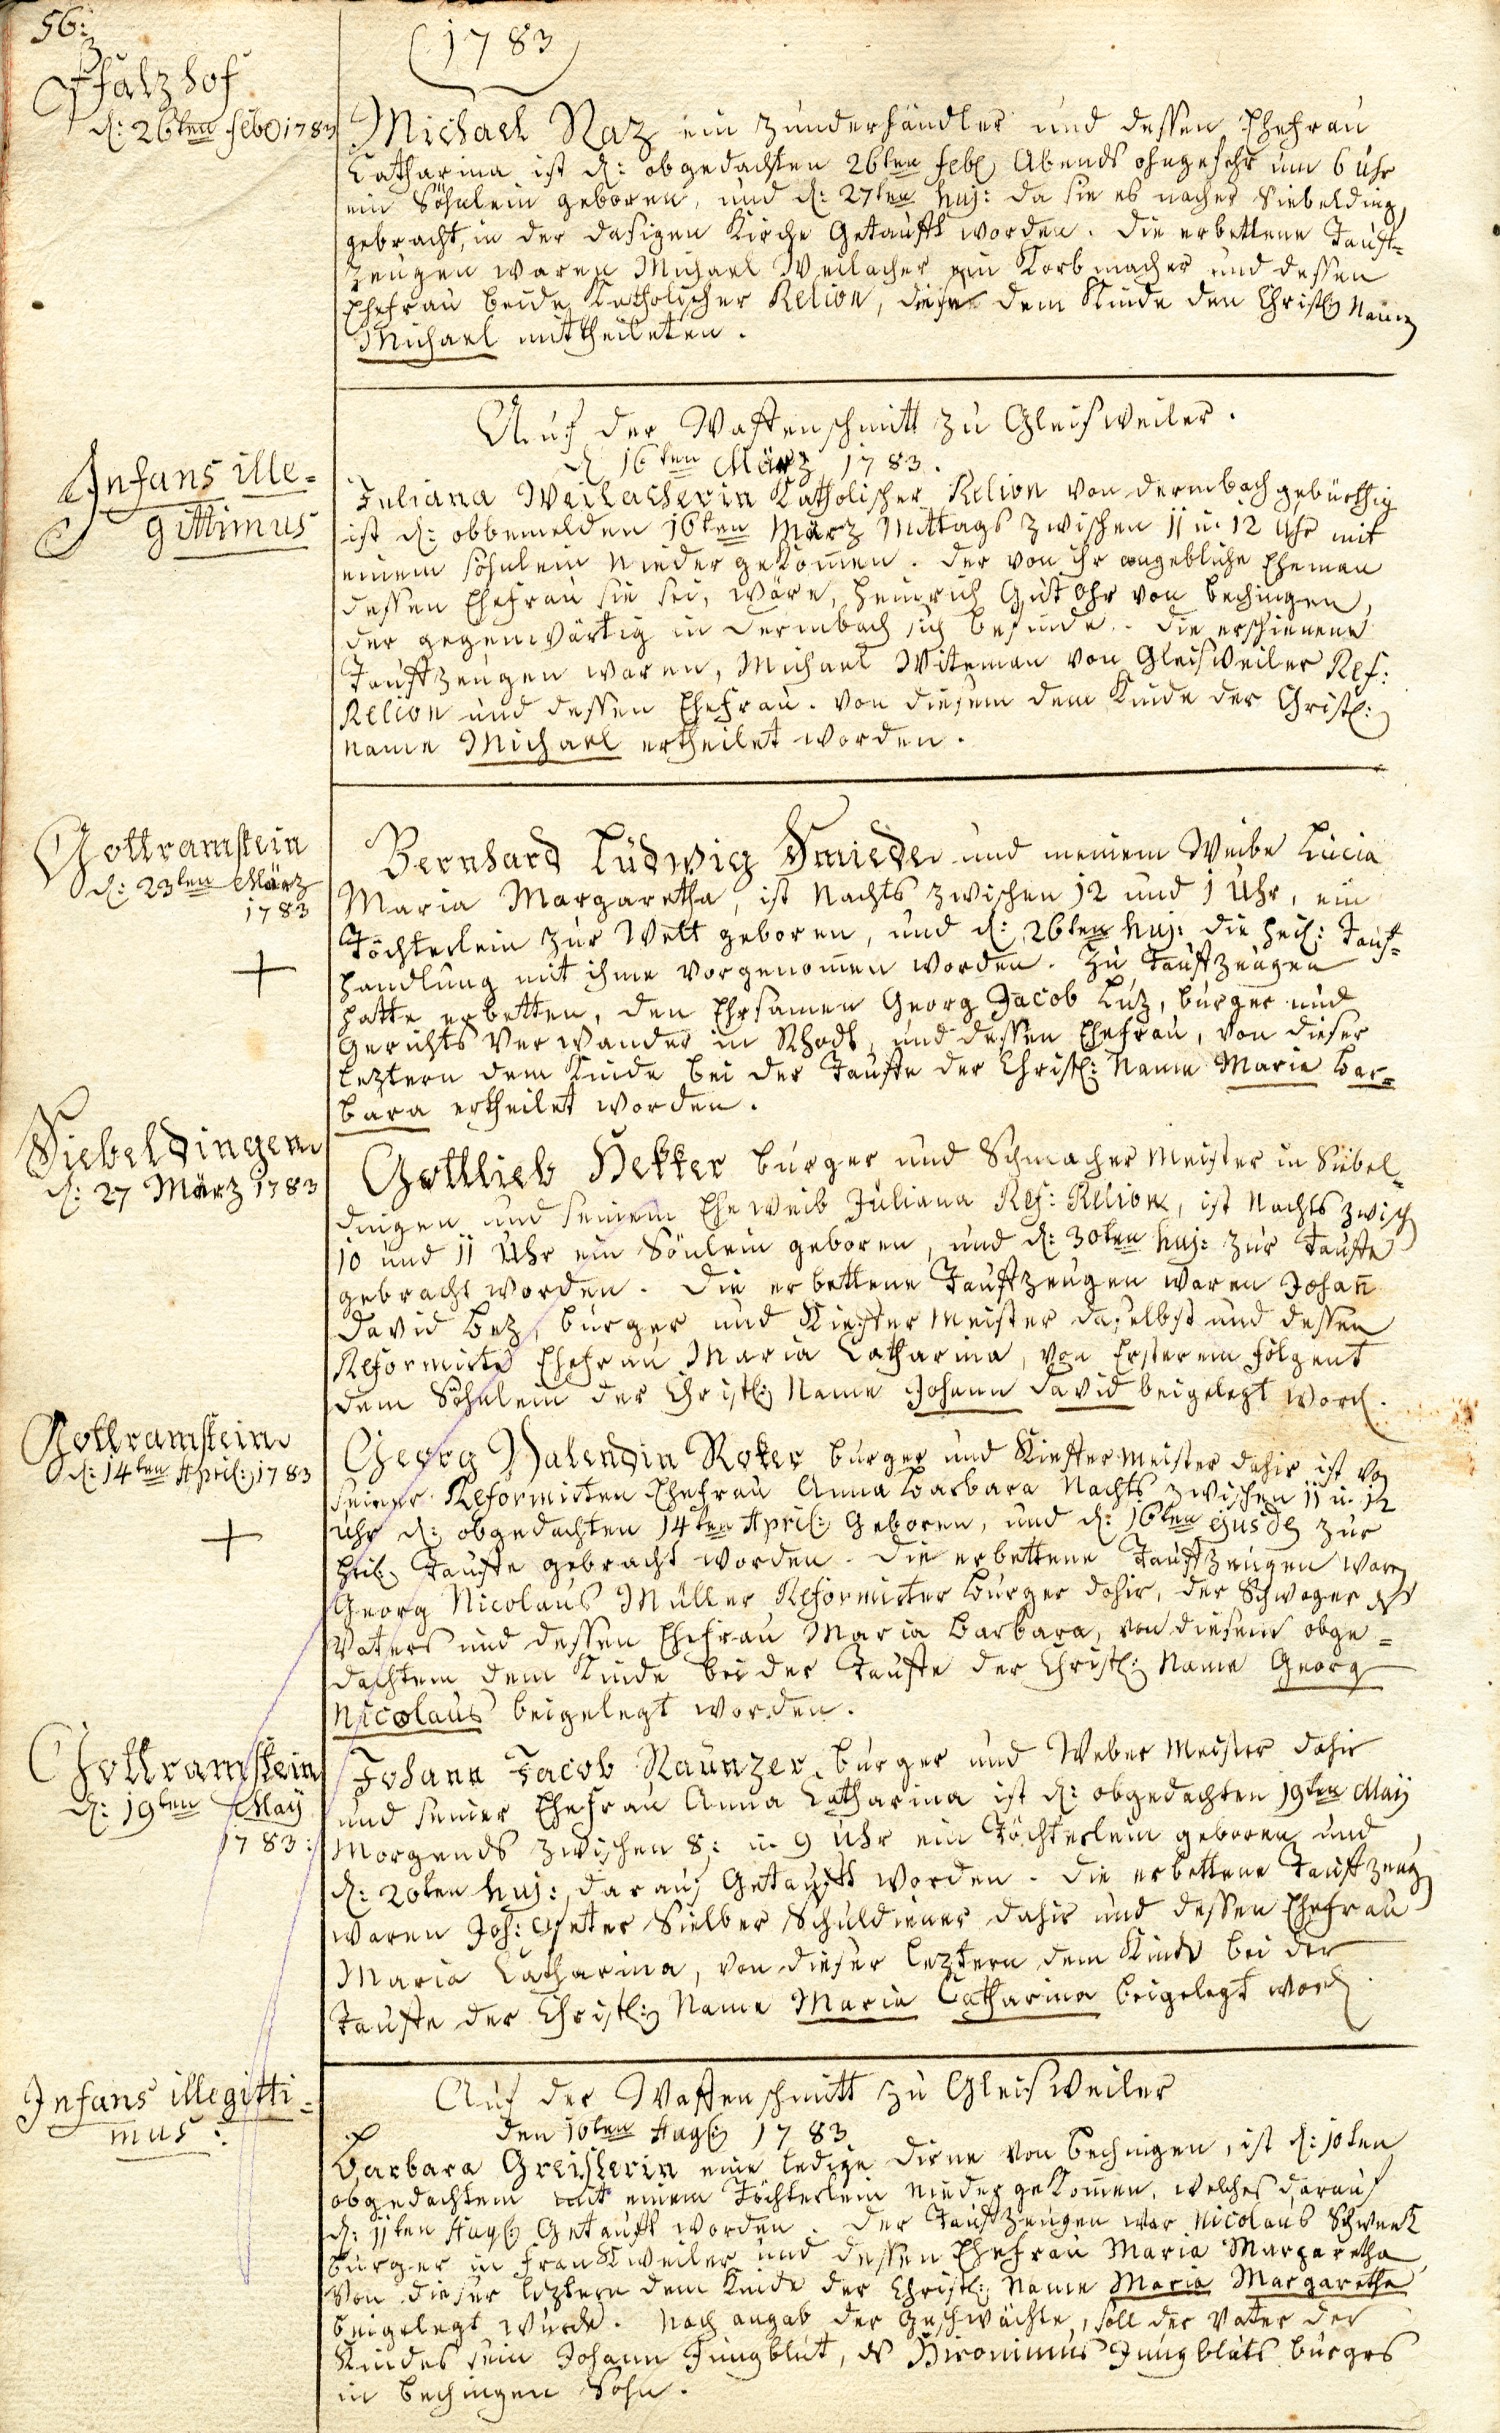 56:
1783
Pfalzhof
d: 26ten Feb 1783
Michael Raz ein Zunderhändler und dessen Ehefrau
Catharina ist d: obgedachten 26ten feb: Abends ohngefehr um 6 Uhr
ein Söhnlein geboren, und d: 27ten huj: da sie es nacher Siebelding
gebracht, in der dasigen Kirche Getaufft worden. Die erbettene Tauff-
Zeugen waren Michael Weilacher ein Korbmacher und dessen
Ehefrau beide Katholischer Relion, diese dem Kinde den Christl: Namen
Michael mittheileten.
Auf der Waffenschmitt zu Gleisweiler.
d 16ten März 1783.
Infans ille-
gittimus
Juliana Weilacherin Katholischer Relion von Dermbach gebürthig
ist d: obbemelden 16ten März Mittags zwischen 11 u. 12 Uhr mit
einem söhnlein niedergekommen. Der von ihr angebliche Eheman
dessen Ehefrau sie sei, wäre, Heinrich Gutohr von Bechingen,
der gegenwärtig in Dermbach sich befinde. Die erschienene
Tauffzeugen waren, Michael Witeman von Gleisweiler Ref:
Relion und dessen Ehefrau. von diesem dem Kinde der Christl:
name Michael ertheilet worden.
Gottramstein
d: 23ten März
1783
+
Bernhard Ludwig Smieder und meinem Weibe Lucia
Maria Margaretha, ist Nachts zwischen 12 und 1 Uhr, ein
Töchterlein zur Welt geboren, und d: 26ten huj: die heil: Tauf-
handlung mit ihme vorgenommen worden. Zu Tauffzeugen
hatte erbetten, den Ehrsamen Georg Jacob Luz, burger und
Gerichts Verwander in Rhodt, und dessen Ehefrau, von dieser
leztern dem Kinde bei der Tauffe der Christl: Name Maria Bar-
bara ertheilet worden.
Siebeldingen
d: 27 März 1783
Gottlieb Hekker burger und Schmacher Meister in Siebel-
dingen und seinem Eheweib Juliana Ref: Relion, ist Nachts zwisch
10 und 11 Uhr ein Sönlein geboren, und d: 30ten huj: zur Tauffe
gebracht worden. Die erbettene Tauffzeugen waren Johann
David Bez, burger und Kieffer Meister daselbst und dessen
Reformirte Ehefrau Maria Catharina, von Ersterem folgent
dem Söhnlein der Christl: Name Johann David beigelegt word.
Gottramstein
d: 14ten April: 1783
+
Georg Valendin Roker burger und Kieffer meister dahir ist von
seiner Reformirten Ehefrau Anna Barbara Nachts zwischen 11 u. 12
Uhr d: obgedachten 14ten April: Geboren, und d: 16ten ejusd: zur
heil: Tauffe gebracht worden. Die erbettene Tauffzeugen waren
Georg Nicolaus Müller Reformirter burger dahir, der Schwager des
Vaters und dessen Ehefrau Maria Barbara, von diesem obge-
dachtem dem Kinde bei der Tauffe der Christl: Name Georg
Nicolaus beigelegt worden.
Gottramstein
d: 19ten May
1783:
Johann Jacob Raunzer, burger und Weber Meister dahir
und seiner Ehefrau Anna Catharina ist d: obgedachten 19ten May
Morgends zwischen 8: u. 9 Uhr ein Töchterlein geboren und
d: 20ten huj: darauf Getaufft worden. Die erbettene Tauffzeug
waren Joh: Peter Sielber Schuldiener dahir und dessen Ehefrau
Maria Catharina, von dieser leztern dem Kinde bei der
Tauffe der Christl: Name Maria Catharina beigelegt word
Auf der Waffenschmitt zu Gleisweiler
den 10ten Aug: 1783
Infans illegitti-
mus:
Barbara Greislerin eine ledige Dirne von Bechingen, ist d: 10ten
obgedachtem mit einem Töchterlein niedergekommen, welches darauf
d: 11ten Aug: Getaufft worden. Der Tauffzeugen war Nicolaus Schwenk
burger in Frankweiler und dessen Ehefrau Maria Margaretha
von dieser leztern dem Kinde der Christl: Name Maria Margaretha
beigelegt wurde. Nach angab der Geschwächte, soll der Vater der
Kindes sein Johann Jungblut, ds Hironimus Jungbluts burgers
in Bechingen Sohn.